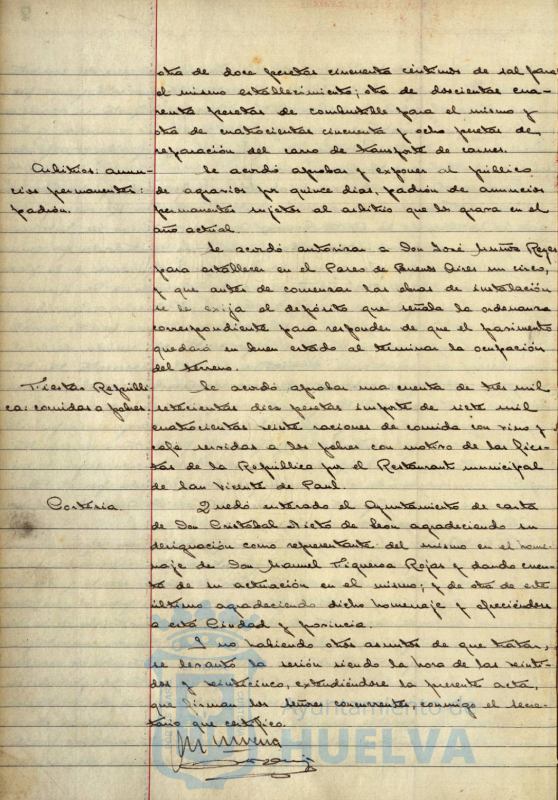 otra de doce pesetas cincuenta céntimos de sal para
el mismo establecimiento; otra de doscientas cua-
renta pesetas de combustible para el mismo y
otra de cuatrocientas cincuenta y ocho pesetas de
reparación del carro de transporte de carnes.
Arbitrios: anun-
cios permanentes:
padrón.
Se acordó aprobar y exponer al público
de agravios por quince días, padrón de anuncios
permanentes sujetos al arbitrio que los grava en el
año actual.
Se acordó autorizar a Don José Muñoz Reyes
para establecer en el Paseo de Buenos Aires un circo,
y que antes de comenzar las obras de instalación
se le exija el depósito que señala la ordenanza
correspondiente para responder de que el pavimento
quedará en buen estado al terminar la ocupación
del terreno.
Fiestas Repúbli-
ca: comidas a pobres.
Se acordó aprobar una cuenta de tres mil
setecientas diez pesetas importe de siete mil
cuatrocientas veinte raciones de comida con vino y
café servidas a los pobres con motivo de las fies-
tas de la República por el Restaurant municipal
de San Vicente de Paul.
Cortesía
Quedó enterado el Ayuntamiento de carta
de Don Cristobal Nieto de León agradeciendo su
designación como representante del mismo en el home-
naje de Don Manuel Figueroa Rojas y dando cuen-
ta de su actuación en el mismo; y de otra de este
último agradeciendo dicho homenaje y ofreciéndose
a esta Ciudad y provincia.
Y no habiendo otros asuntos de que tratar,
se levantó la sesión siendo la hora de las veinti-
dos y veinticinco, extendiéndose la presente acta,
que firman los señores concurrentes, conmigo el Secre-
tario que certifico.
Ayuntamiento de
HUELVA